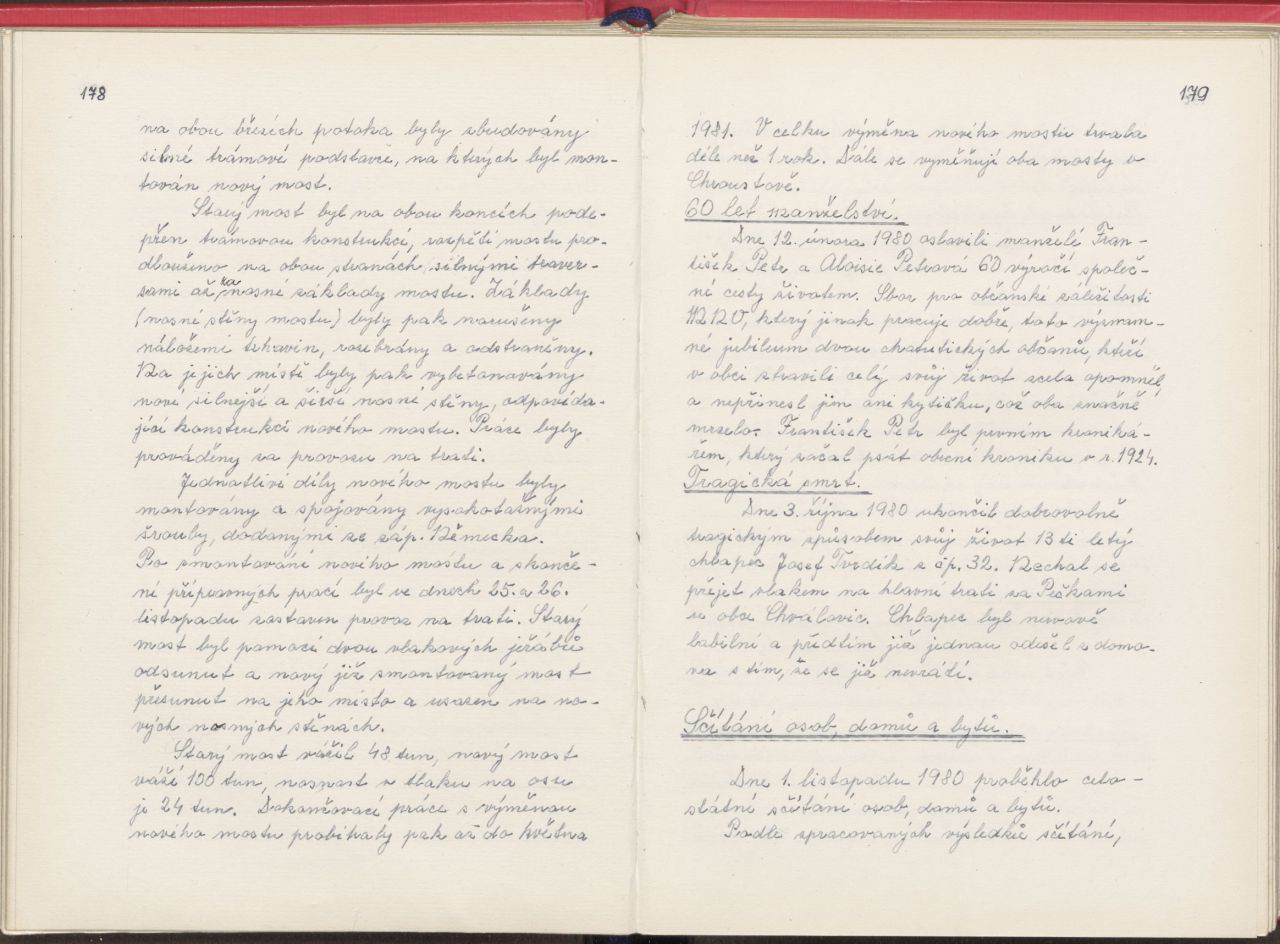 178
na obou březích potoka byly zbudovány
silné trámové podstavce, na kterých byl mon-
tován nový most.
Starý most byl na obou koncích pode-
přen trámovou konstrukcí, rozpětí mostu pro-
dlouženo na obou stranách silnými traver-
sami až za nosné základy mostu. Základy
(nosné stěny mostu) byly pak narušeny
náložemi trhavin, rozebrány a odstraněny.
Na jejich místě byly pak vybetonovány
nové silnější a širší nosné stěny, odpovída-
jící konstrukcí nového mostu. Práce byly
prováděny za provozu na trati.
Jednotlivé díly nového mostu byly
montovány a spojovány vysokotažnými
šrouby, dodanými ze záp. Německa.
Po smontování nového mostu a skonče-
ní přípravných prací byl ve dnech 25. a 26.
listopadu zastaven provoz na trati. Starý
most byl pomocí dvou vlakových jeřábů
odsunut a nový již smontovaný most
přesunut na jeho místo a usazen na no-
vých nosných stěnách.
Starý most vážil 48 tun, nový most
váží 100 tun, nosnost v tlaku na osu
je 24 tun. Dokončovací práce s výměnou
nového mostu probíhaly pak až do května
179
1981. V celku výměna nového mostu trvala
déle než 1 rok. Dále se vyměňují oba mosty v
Chroustově.
60 let manželství.
Dne 12. února 1980 oslavili manželé Fran-
tišek Petr a Aloisie Petrová 60 výročí společ-
né cesty životem. Sbor pro občanské záležitosti
MNV, který jinak pracuje dobře, toto význam-
né jubileum dvou chotutických občanů, kteří
v obci strávili celý svůj život zcela opomněl,
a nepřinesl jim ani kytičku, což oba značně
mrzelo. František Petr byl prvním kroniká-
řem, který začal psát obecní kroniku v r. 1924.
Tragická smrt.
Dne 3. října 1980 ukončil dobrovolně
tragickým způsobem svůj život 13 ti letý
chlapec Josef Tvrdík z čp. 32. Nechal se
přejet vlakem na hlavní trati za Peškami
u obce Chválovic. Chlapec byl nervově
labilní a předtím již jednou odešel z domo-
va s tím, že se již nevrátí.
Sčítání osob, domů a bytů.
Dne 1. listopadu 1980 proběhlo celo-
státní sčítání osob, domů a bytů.
Podle zpracovaných výsledků sčítání,